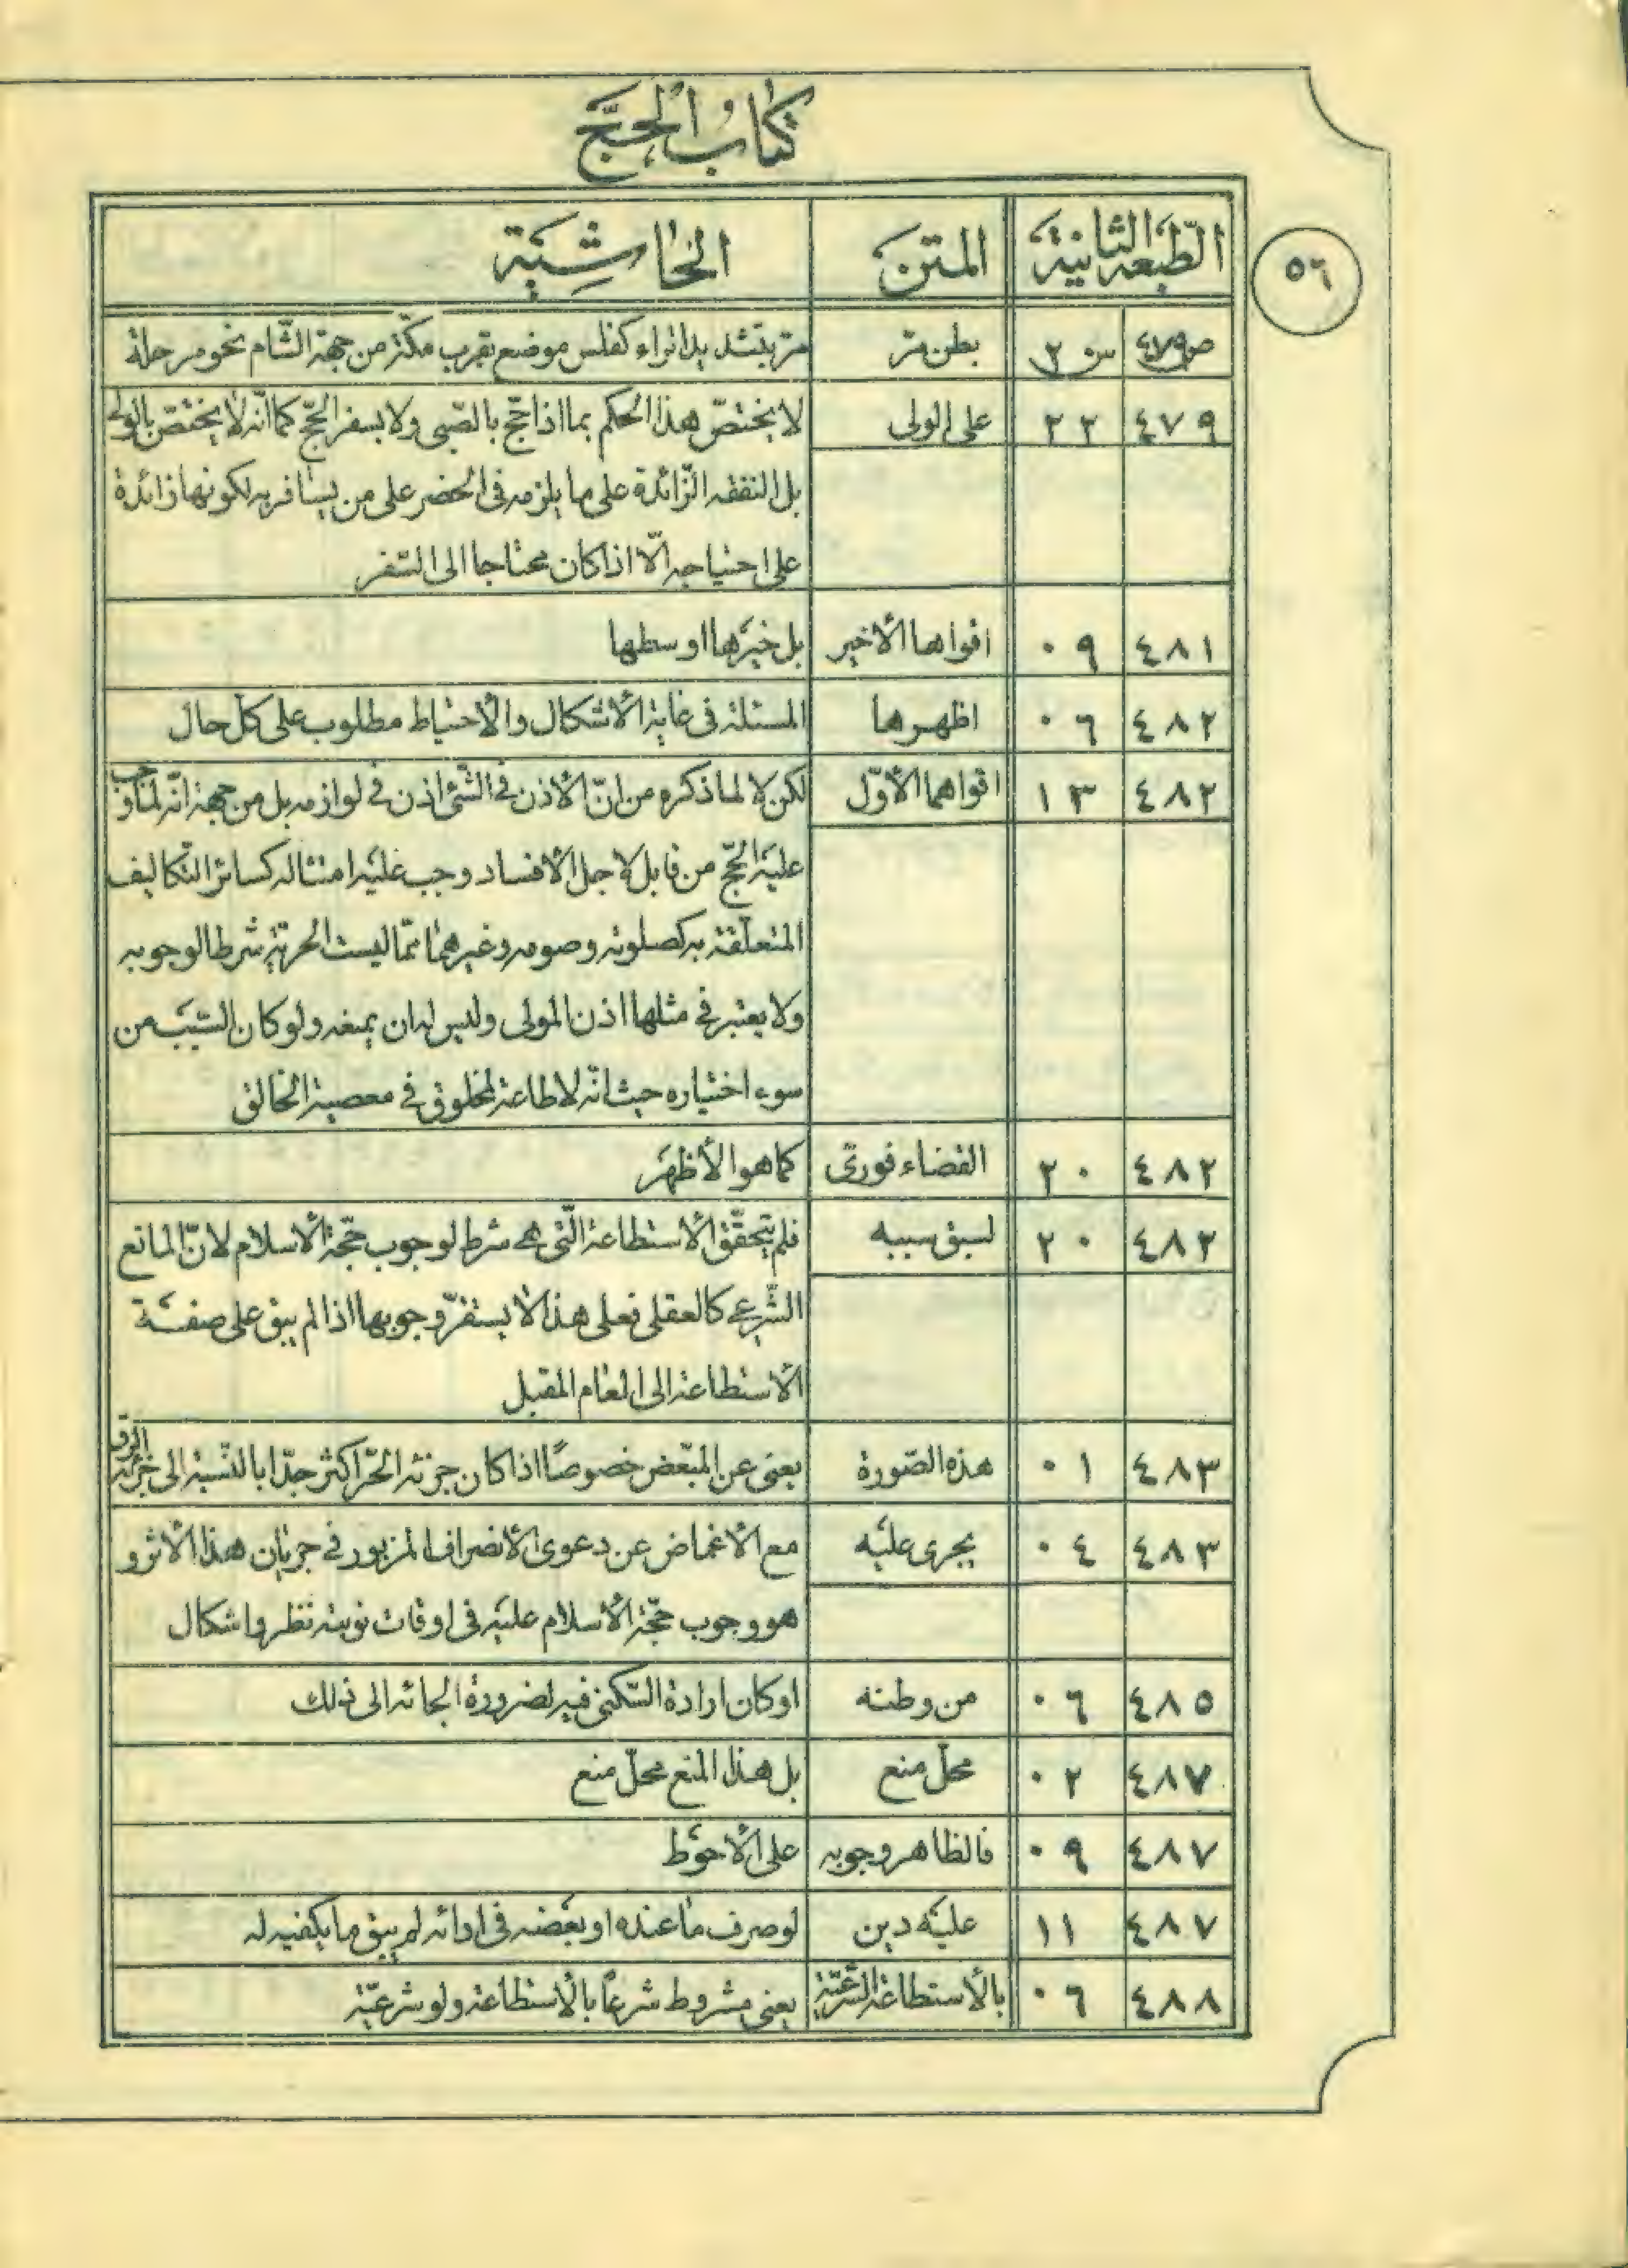 كتاب الحجّ
٥٦
الطّبعة الثّانية المتن الحاشية
ص٤٧٩ س ٢ بطن مرّ مرّ بتشديد الرّاء كفلس موضع بقرب مكّة من جهة الشّام نحو مرحلة
٤٧٩ ٢٢ على الولى لا يختصّ هذا الحكم بما اذا حجّ بالصّبى ولا بسفر الحجّ كما انّه لا يختصّ بالولى
بل النفقه الزّائدة على ما يلزمه فى الحضر على من يسافر به لكونها زائدة
على احتياجه الّا اذا كان محتاجا الى السّفر
٤٨١ ٠٩ اقواها الأخير بل خيرها اوسطها
٤٨٢ ٠٦ اظهرها المسئلة فى غاية الأشكال والأحتياط مطلوب على كلّ حال
٤٨٢ ١٣ اقواهما الأوّل لكن لا لما ذكره من انّ الأذن فى الشّئ اذن فى لوازمه بل من جهة انّه لمّا وجب
عليه الحجّ من قابل لأجل الأفساد وجب عليه امتثاله كسائر التّكاليف
المتعلّقة به كصلوته وصومه وغيرهما ممّا ليست الحرّية شرطا لوجوبه
ولا يعتبر فى مثلها اذن المولى وليس له ان يمنعه ولو كان السّبب من
سوء اختياره حيث انّه لا طاعة لمخلوق فى معصية الخالق
٤٨٢ ٢٠ القضاء فورىّ كما هو الأظهر
٤٨٢ ٢٠ لسبق سببه فلم يتحقّق الأستطاعة الّتى هى شرط لوجوب حجّة الأسلام لانّ المانع
الشّرعى كالعقلى فعلى هذا لا يستقرّ وجوبها اذا لم يبق على صفة
الأستطاعة الى العام المقبل
٤٨٣ ٠١ هذه الصّورة يعنى عن المبّعض خصوصًا اذا كان جزئه الحرّ اكثر جدّا بالنّسبة الى جزئه الرق
٤٨٣ ٠٤ يجرى عليه مع الأغماض عن دعوى الأنصراف المزبور فى جريان هذا الأثر و
هو وجوب حجّة الأسلام عليه فى اوقات نوبته نظر واشكال
٤٨٥ ٠٦ من وطنه او كان ارادة السّكنى فيه لضرورة الجائه الى ذلك
٤٨٧ ٠٢ محلّ منع بل هذا المنع محلّ منع
٤٨٧ ٠٩ فالظاهر وجوبه على الأحوط
٤٨٧ ١١ عليه دين لو صرف ما عنده او بعضه فى ادائه لم يبق ما يكفيه له
٤٨٨ ٠٦ بالأستطاعة الشّرعيّة يعنى مشروط شرعًا بالأستطاعة ولو شرعيّة